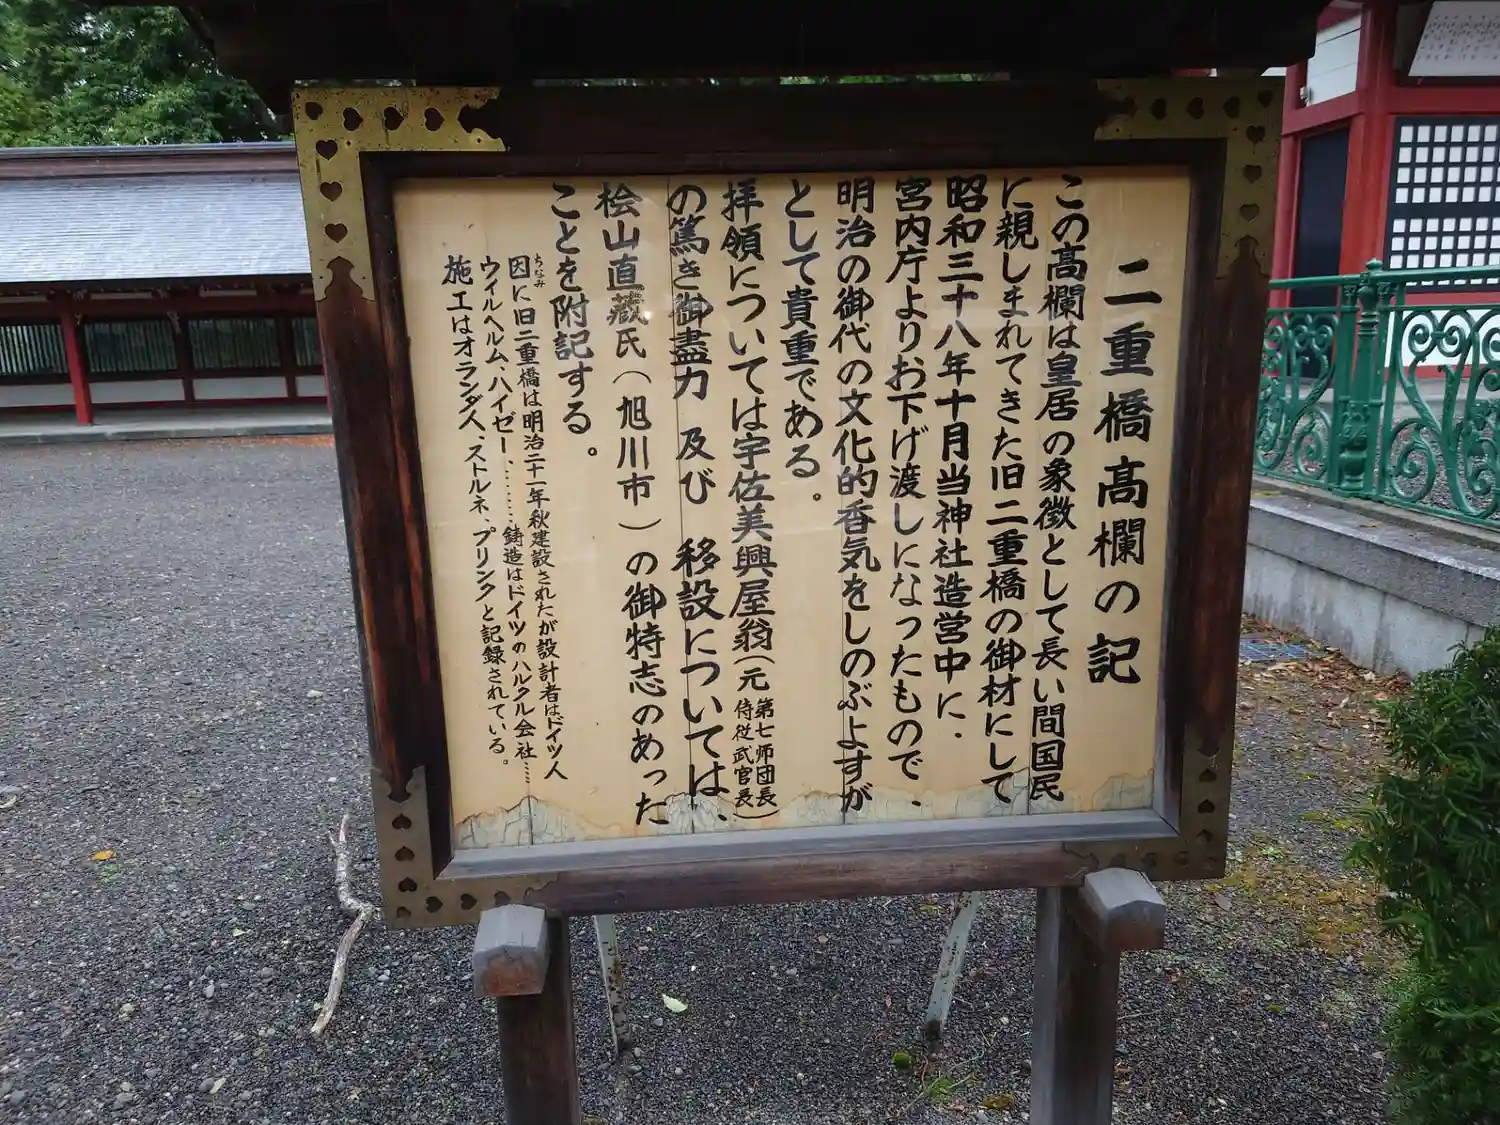 二重橋高欄の記
この高欄は皇居の象徴として長い間国民
に親しまれてきた旧二重橋の御材にして
昭和三十八年十月当神社造営中に、
宮内庁よりお下げ渡しになったもので、
明治の御代の文化的香気をしのぶよすが
として貴重である。
拝領については宇佐美興屋翁(元第七師団長侍従武官長)
の篤き御盡力 及び 移設については、
桧山直蔵氏(旭川市)の御特志のあった
ことを附記する。
因に旧二重橋は明治二十一年秋建設されたが設計者はドイツ人
ちなみ
ウイルヘルム、ハイゼー、……鋳造はドイツのハルクル会社……
施工はオランダ人、ストルネ、プリンクと記録されている。